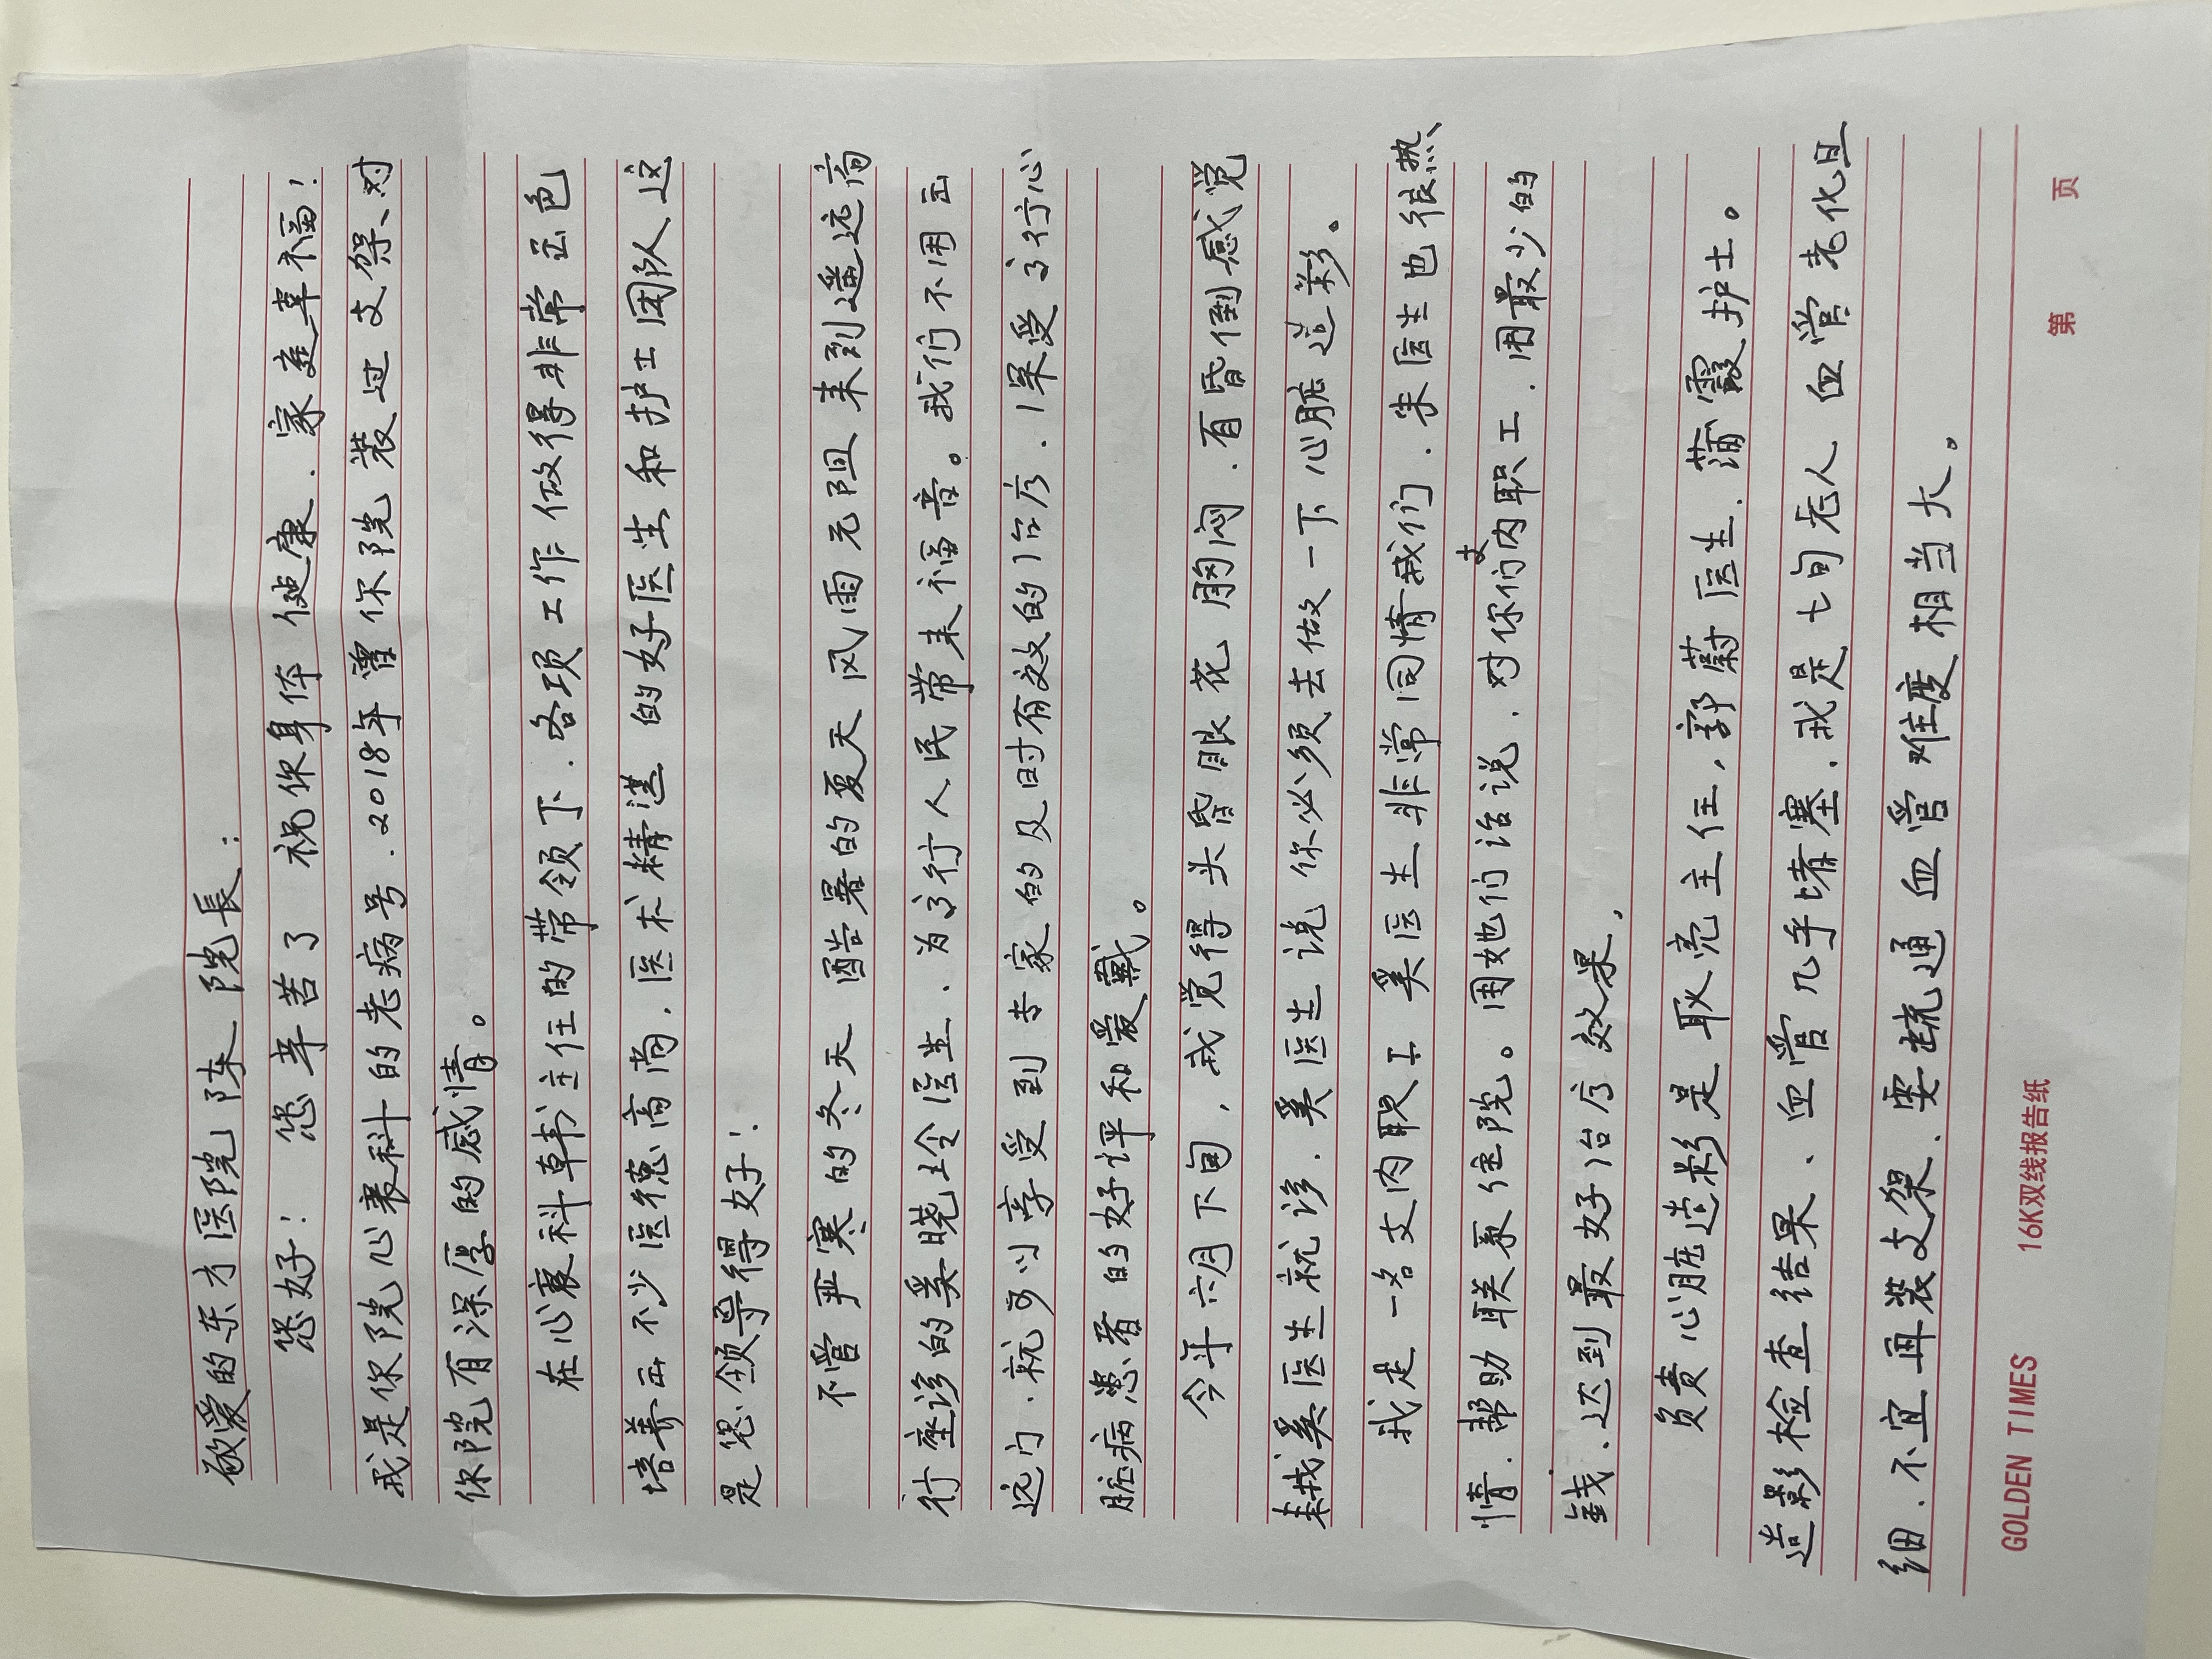 敬爱的东方医院陈院長：
您好！ 您辛苦了 祝你身体健康．家庭幸福！
我是你院心衰科的老病号．2018年曾你院装过支架、对
你院有深厚的感情。
在心衰科韩主任的带领下．各项工作做得非常出色
培养出不少医德高尚．医术精湛的好医生和护士团队、这
是您领导得好！
不管严寒的冬天 酷暑的夏天 风雨无阻 来到遥远高
行座诊的奚晓玲医生．为高行人民带来福音。我们不用出
远门．就可以享受到专家的及时有效的治疗．深受高行心
脏病患者的好评和爱戴。
今年六月下旬，我觉得头昏眼花 胸闷．有昏倒感觉
来找奚医生就诊．奚医生说 你必须去做一下心脏造影。
我是一名支内职工 奚医生非常同情我们．朱医生也很热、
情．帮助联系住院。用她们话说．对你们支内职工．用最少的
钱．达到最好治疗效果，
负责心脏造影是耿亮主任，郭蔚医生．蒲霞护士。
造影检查结果、血管几乎堵塞．我是七旬老人 血管老化且
细．不宜再装支架、要疏通血管难度相当大。
GOLDEN TIMES 16K双线报告纸 第 页